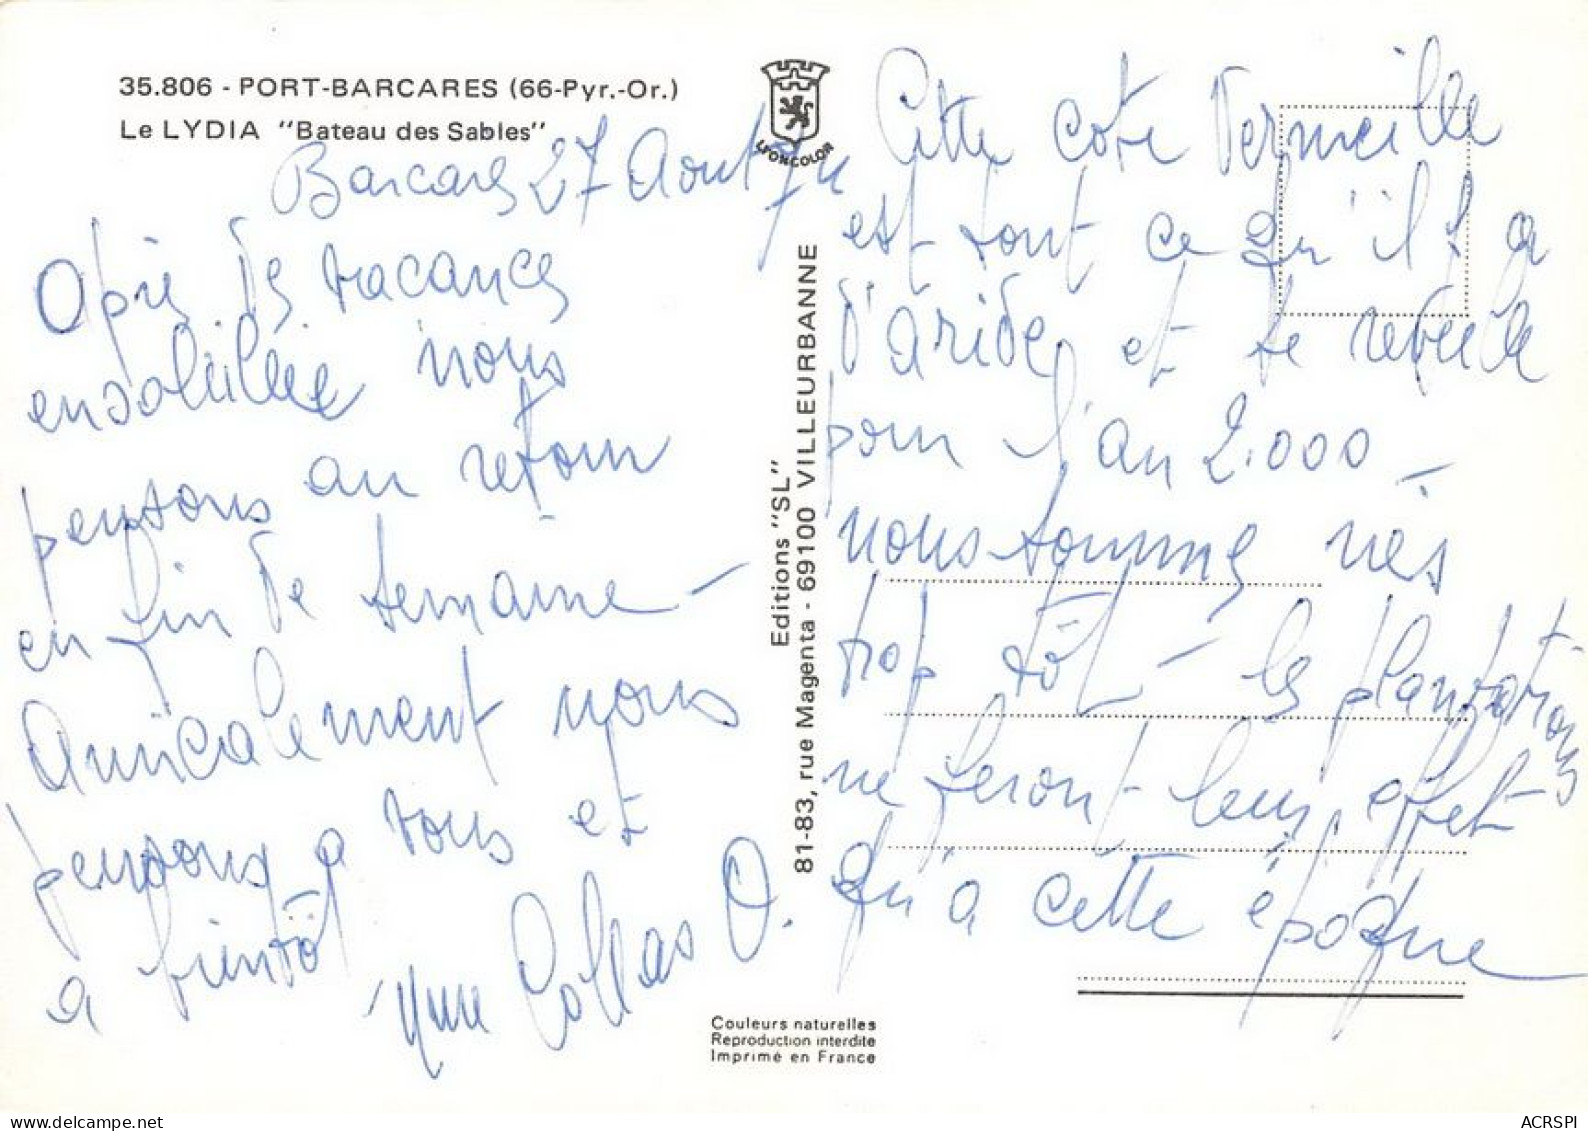 35.806 - PORT-BARCARES (66-Pyr.-Or.)
Le LYDIA "Bateau des Sables"
LYONCOLOR
Barcares 27 Aout 74
Après des vacances
ensoleillée nous
pensons au retour
en fin de semaine -
Amicalement nous
pensons a vous et
a bientôt
Mme Collas O.
Editions "SL"
81-83, rue Magenta - 69100 VILLEURBANNE
Cette cote Vermeille
est tout ce qu'il y a
d'aride, et se reveille
pour l'an 2.000 -
nous sommes nés
trop tôt - les plantations
ne feront leur effet
qu'a cette époque
Couleurs naturelles
Reproduction interdite
Imprimé en France
ACRSPI